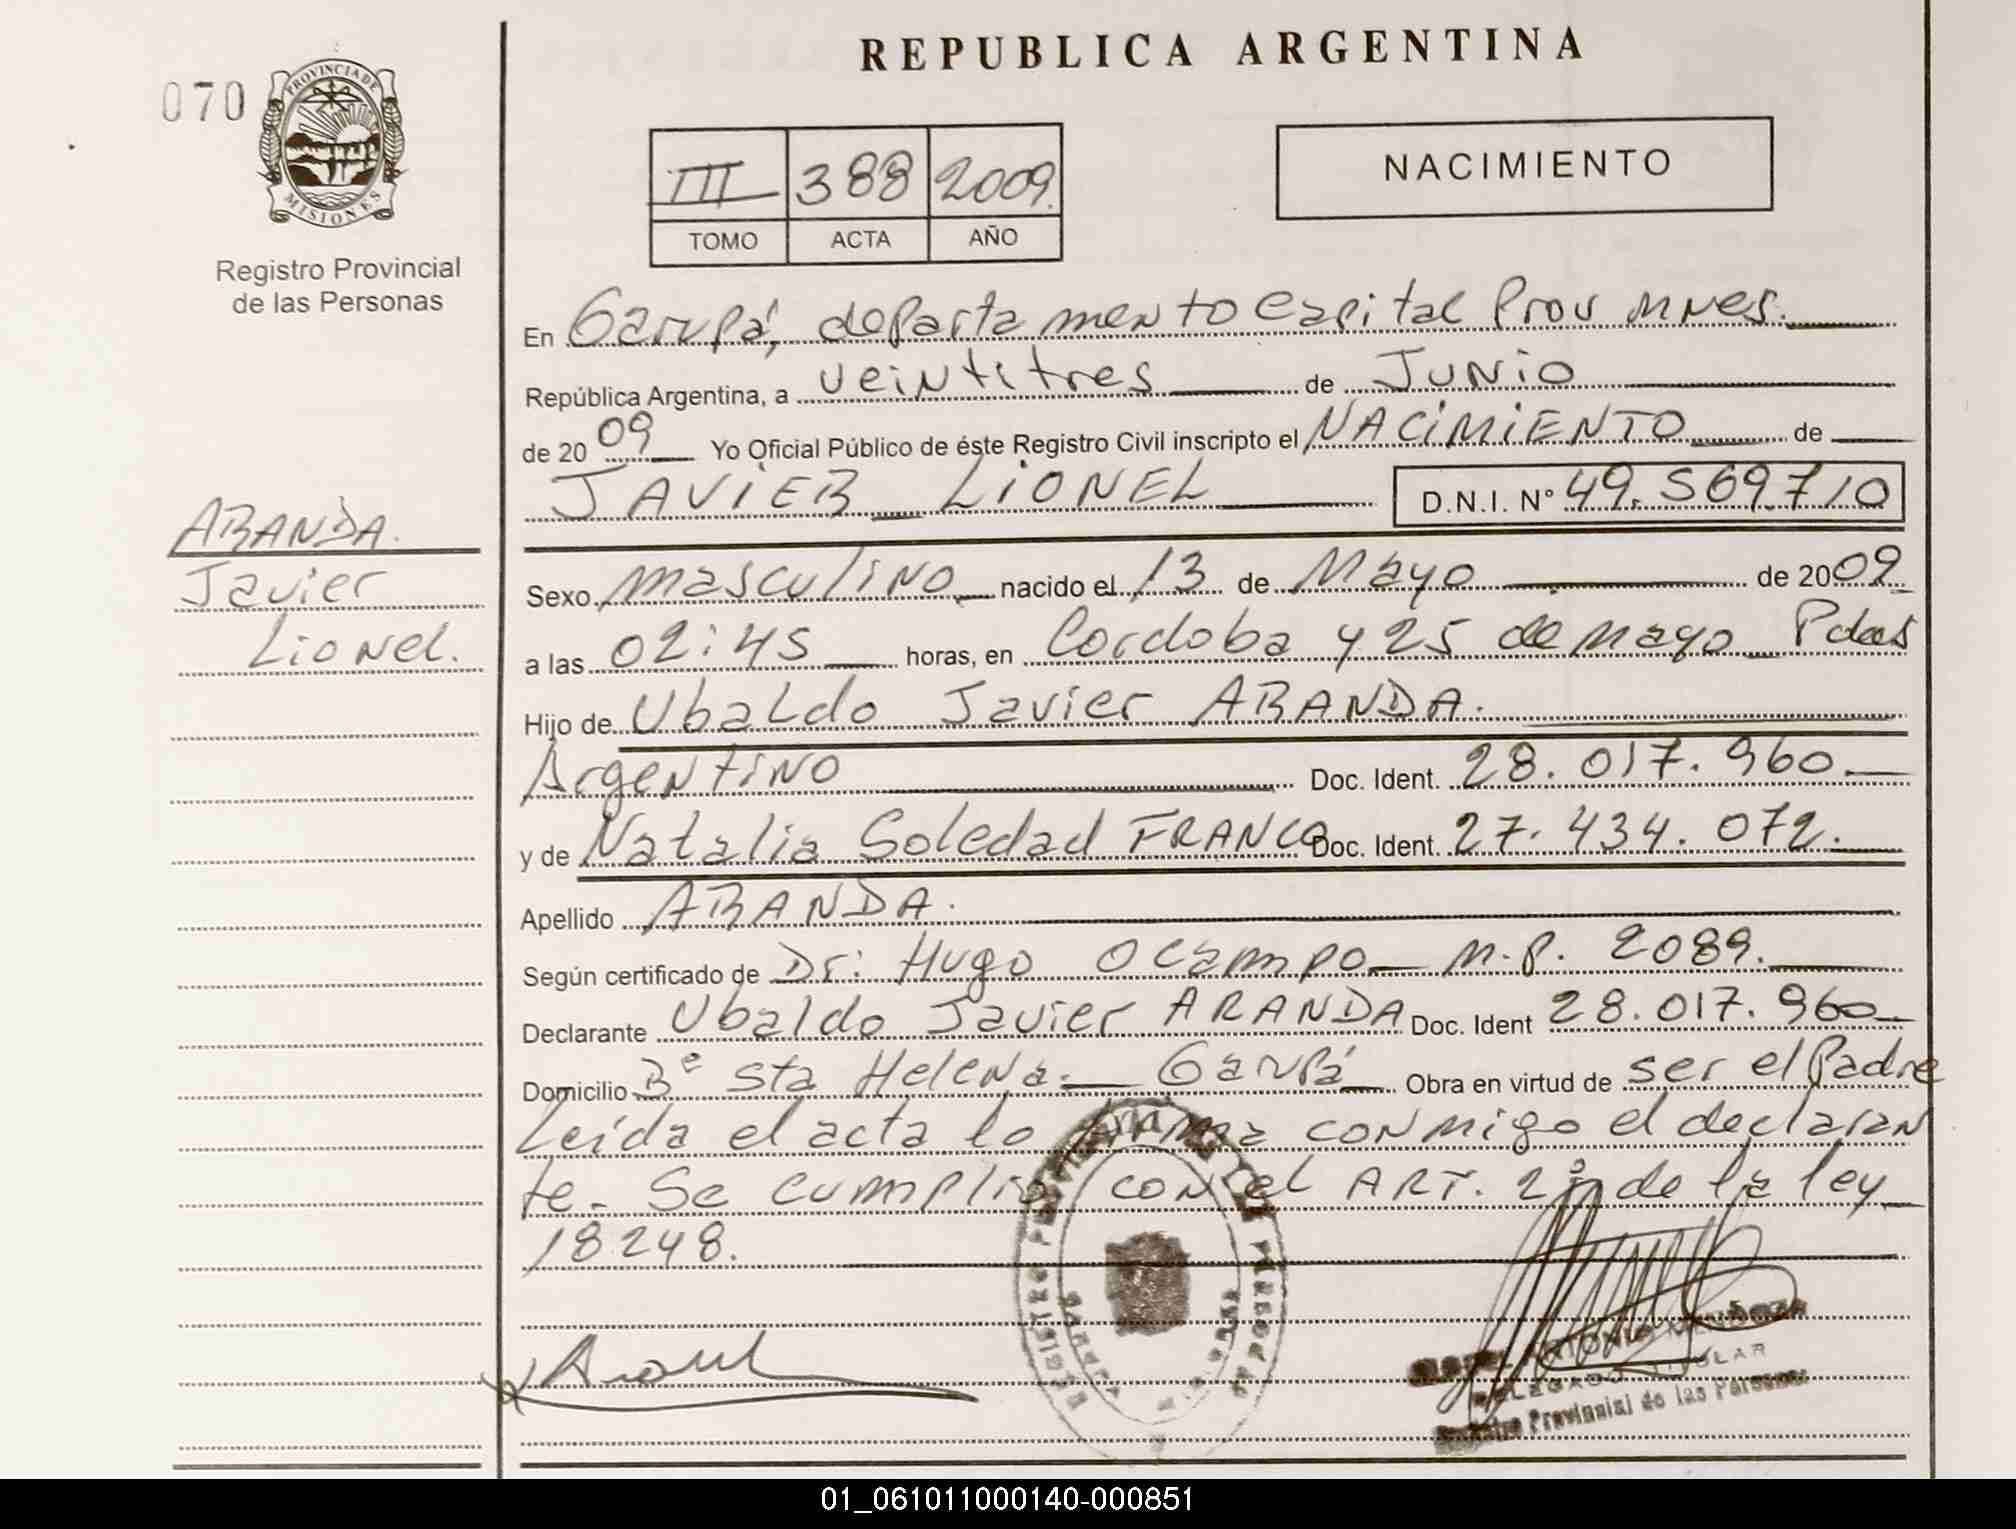 REPUBLICA ARGENTINA
070
PROVINCIA DE
MISIONES
Registro Provincial
de las Personas
III 388 2009.
TOMO ACTA AÑO
NACIMIENTO
En Garupá, departamento Capital Prov Mnes.
República Argentina, a veintitres de Junio
de 2009 Yo Oficial Público de éste Registro Civil inscripto el NACIMIENTO de
JAVIER LIONEL D.N.I. N° 49.569710
ARANDA.
Javier
Lionel.
Sexo masculino nacido el 13 de Mayo de 2009
a las 02:45 horas, en Cordoba y 25 de mayo Pdas
Hijo de Ubaldo Javier ARANDA.
Argentino Doc. Ident. 28.017.960.
y de Natalia Soledad FRANCO Doc. Ident. 27.434.072.
Apellido ARANDA.
Según certificado de Dr: Hugo Ocampo M.P. 2089.
Declarante Ubaldo Javier ARANDA Doc. Ident 28.017.960
Domicilio Bº Sta Helena. Garupá Obra en virtud de ser el Padre
Leída el acta lo firma conmigo el declaran
te. Se cumplió con el ART. 2º de la ley
18248.
ANTONIO
DELEGADO TITULAR
Registro Provincial de las Personas
01_061011000140-000851